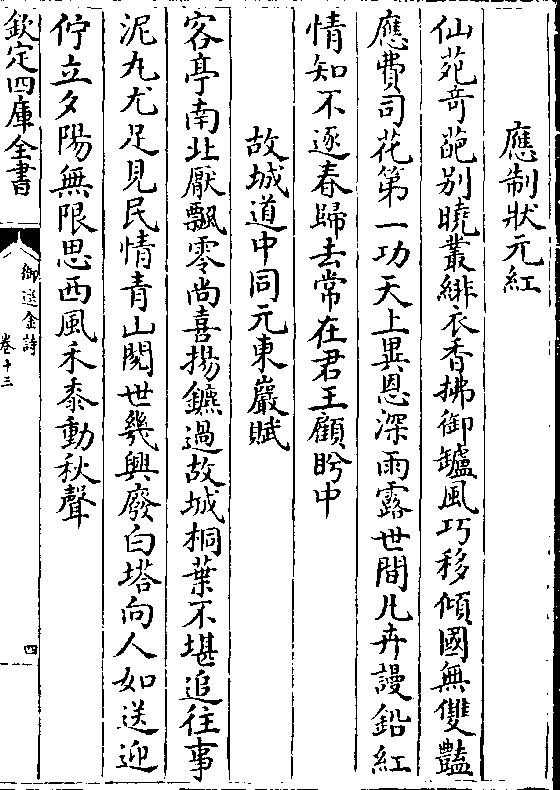 應制狀元紅
仙苑竒葩别曉叢緋衣香拂御罏風巧移傾國無雙豔
應費司花第一功天上異恩深雨露世間凡卉謾鉛紅
情知不逐春歸去常在君王顧盻中
故城道中同元東巖賦
客亭南北厭飄零尚喜揚鑣過故城桐葉不堪追往事
泥丸尤足見民情青山閲世幾興廢白塔向人如送迎
佇立夕陽無限思西風禾黍動秋聲
欽定四庫全書
御選金詩
卷十三
四